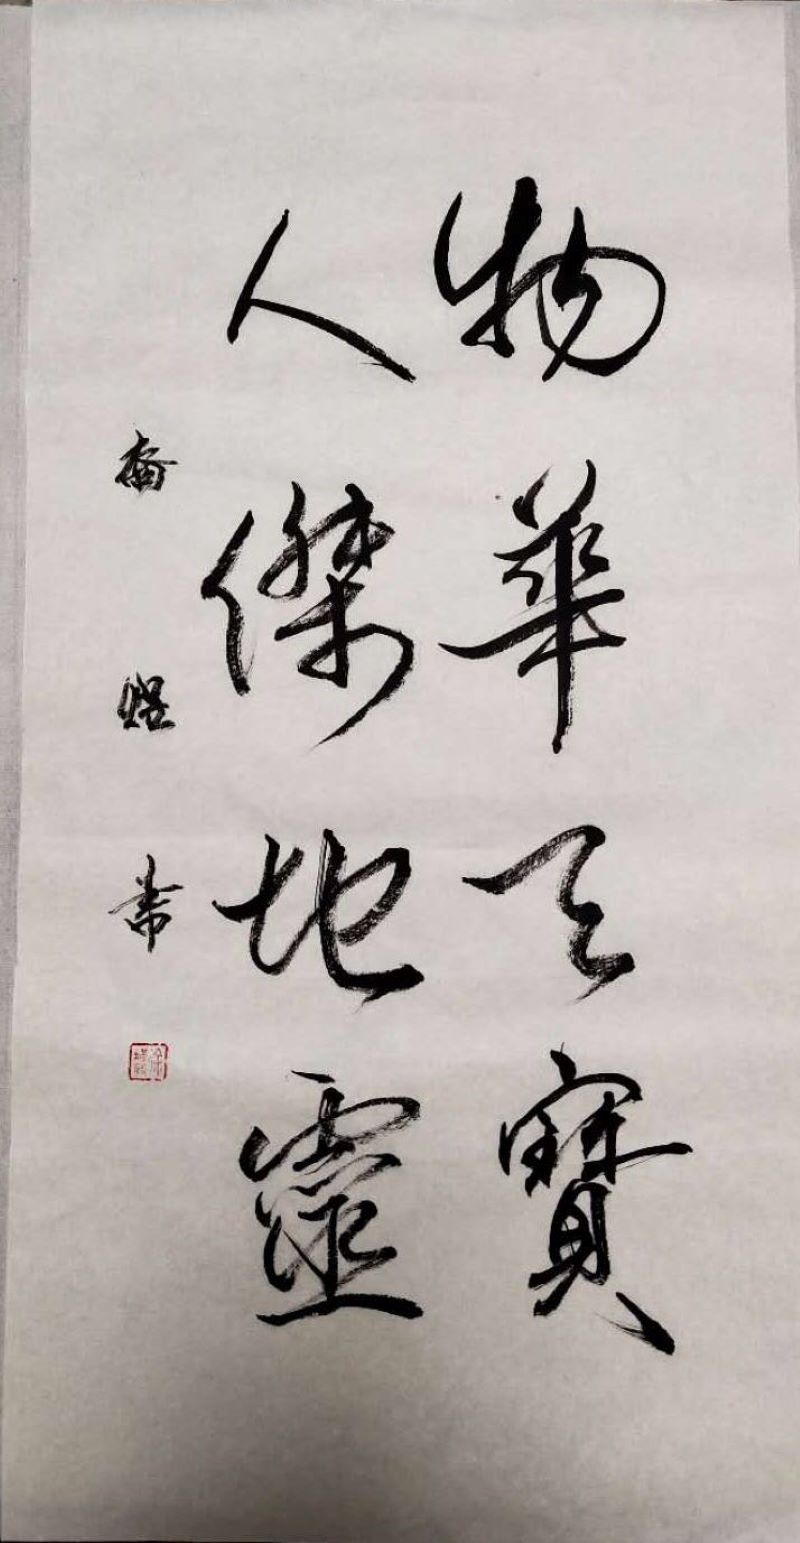 物華天寶
人傑地靈
煜書